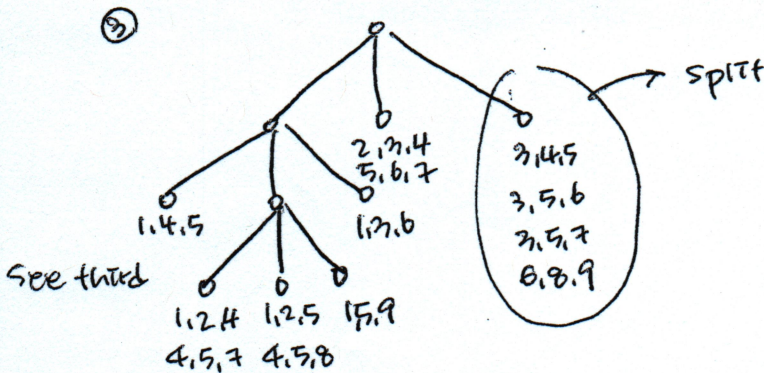 ③
split
2,3,4
5,6,7
3,4,5
3,5,6
3,5,7
6,8,9
1,4,5
1,3,6
See third
1,2,4 1,2,5 15,9
4,5,7 4,5,8